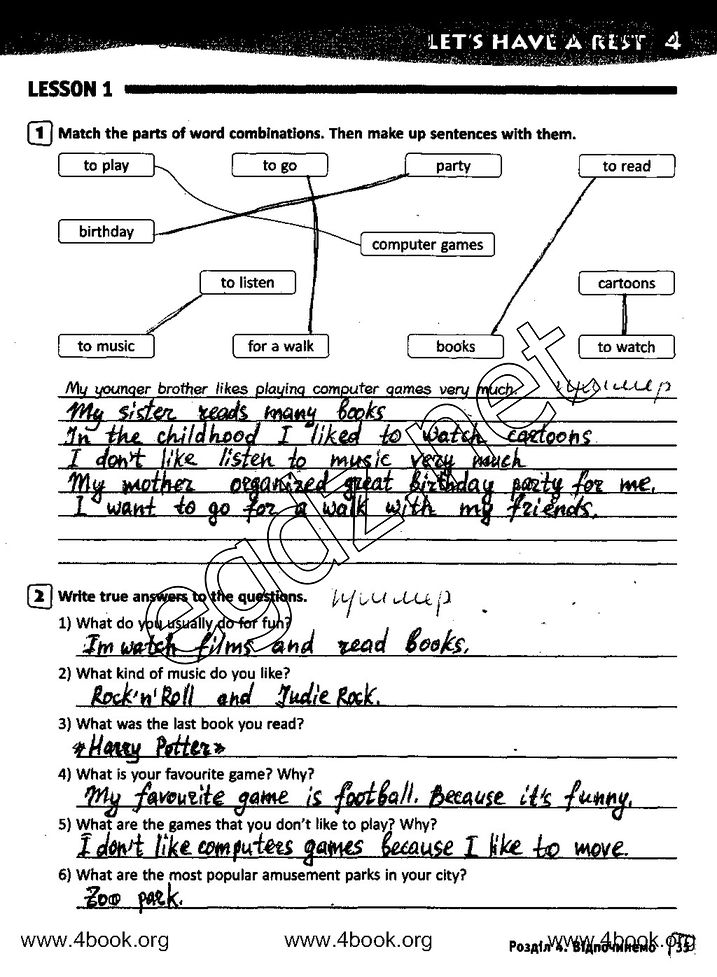 LET'S HAVE A REST 4
LESSON 1
1 Match the parts of word combinations. Then make up sentences with them.
to play to go party to read
birthday
computer games
to listen cartoons
to music for a walk books to watch
My younger brother likes playing computer games very much.
My sister reads many books
In the childhood I liked to watch cartoons
I don't like listen to music very much
My mother organized great birthday party for me.
I want to go for a walk with my friends.
2 Write true answers to the questions.
1) What do you usually do for fun?
Im watch films and read books.
2) What kind of music do you like?
Rock'n'Roll and Indie Rock.
3) What was the last book you read?
«Harry Potter»
4) What is your favourite game? Why?
My favourite game is football. Because it's funny.
5) What are the games that you don't like to play? Why?
I don't like computers games because I like to move.
6) What are the most popular amusement parks in your city?
Zoo park.
egdz.net
www.4book.org www.4book.org www.4book.org
Розділ 4. Відпочинемо 33